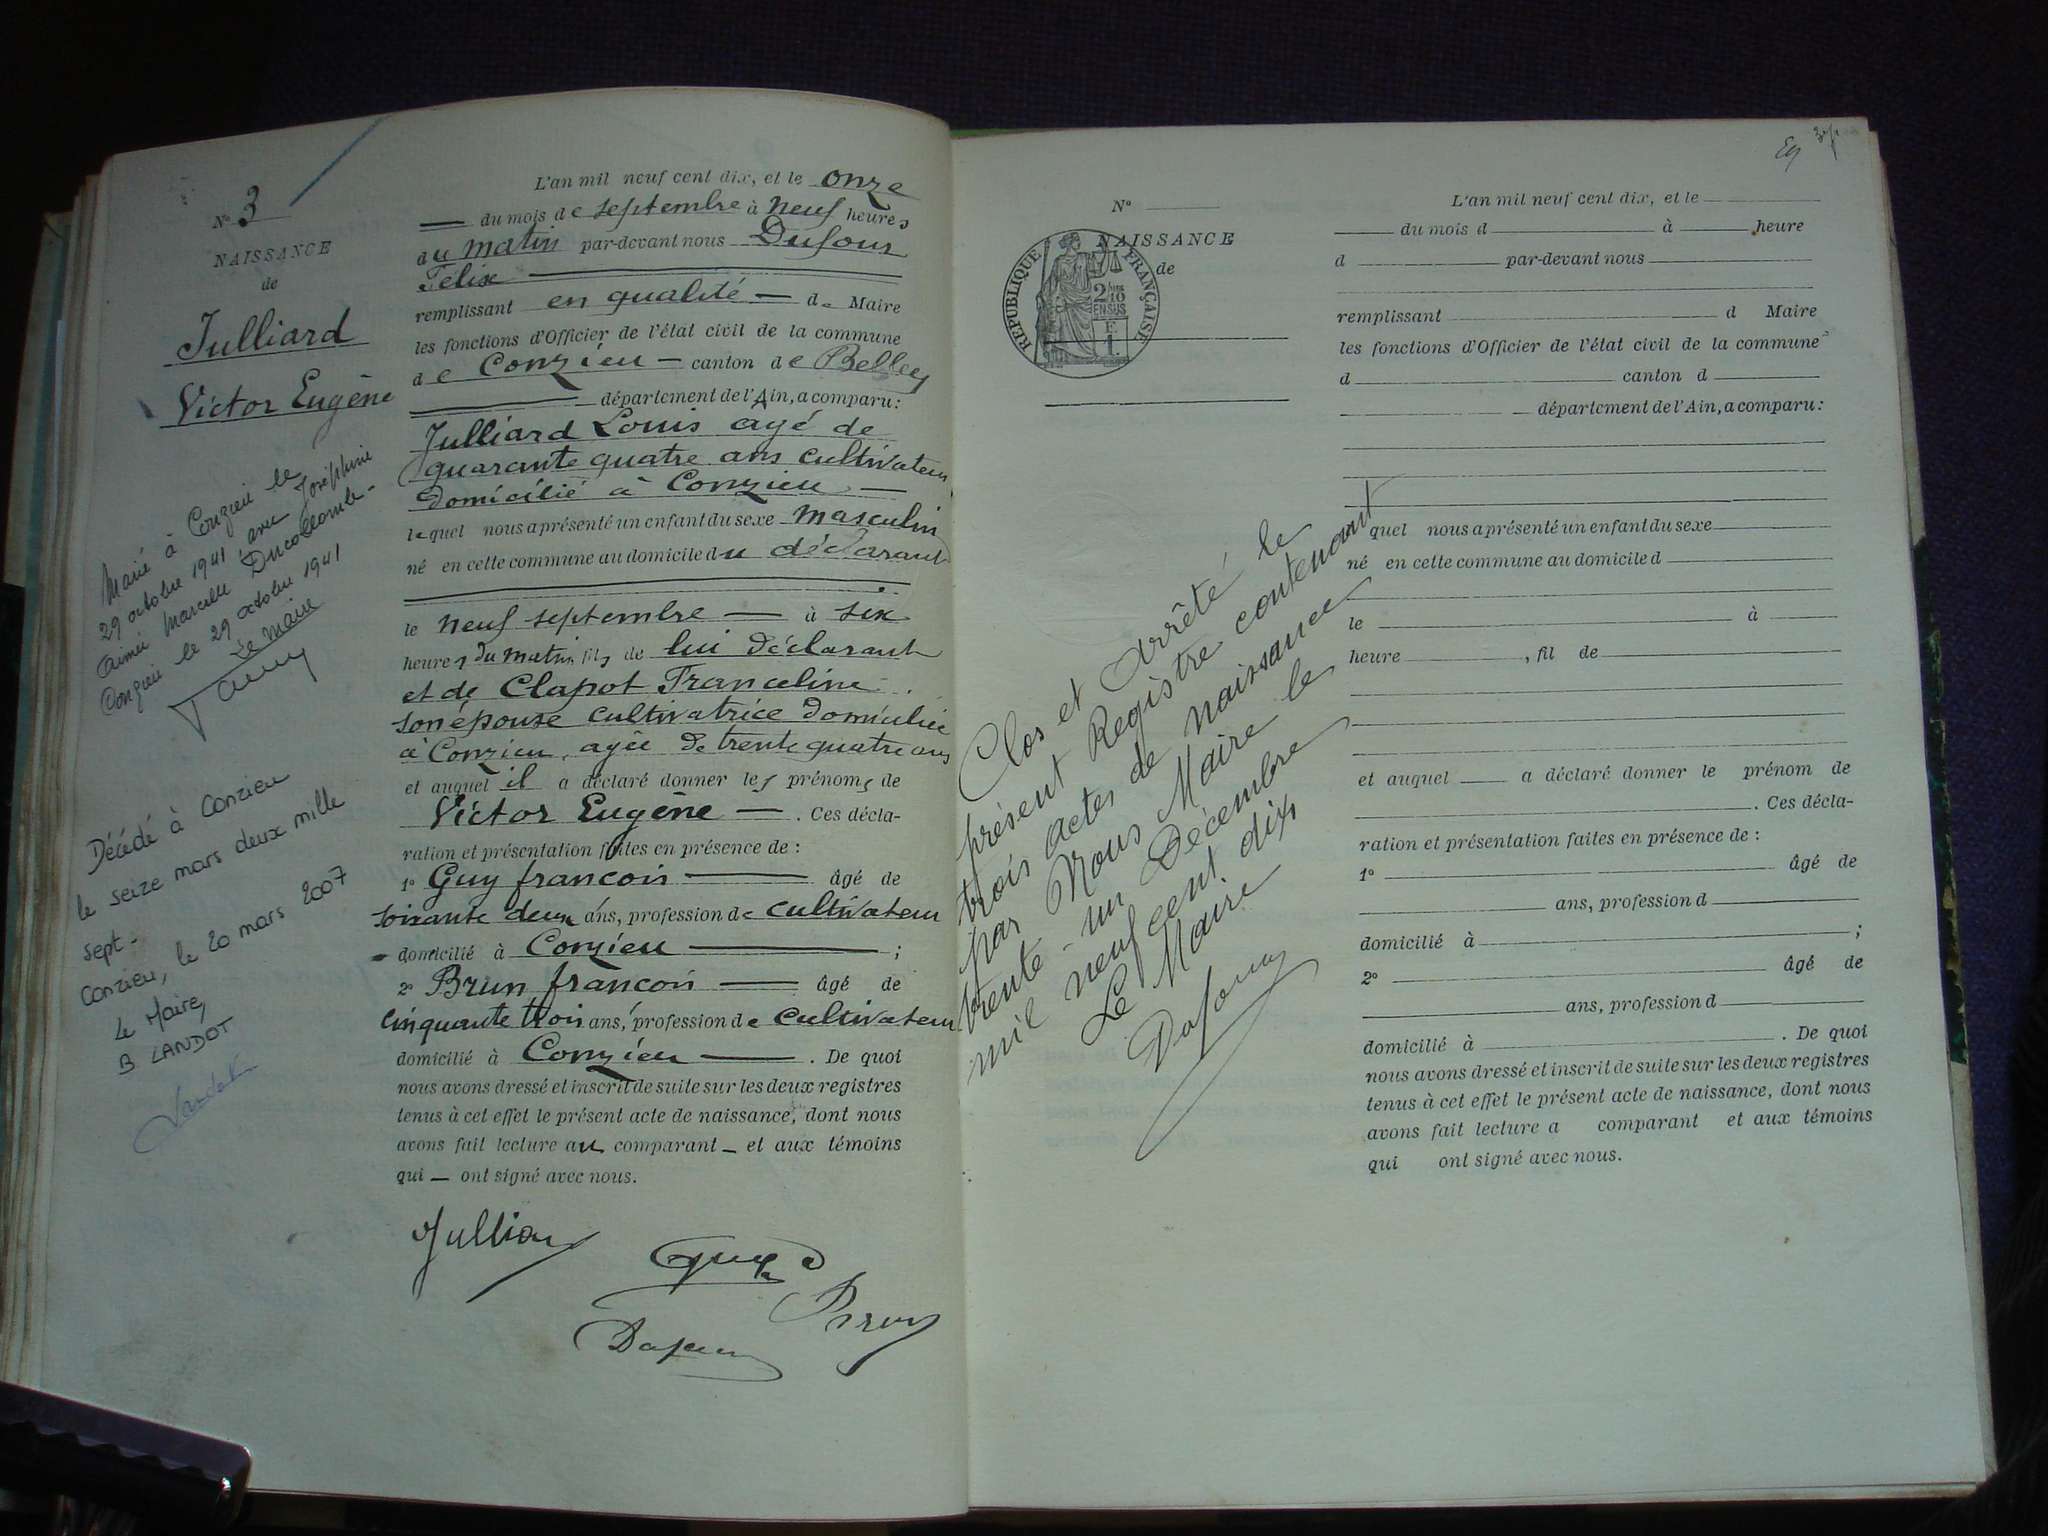 N° 3
NAISSANCE
de
Julliard
Victor Eugène
Marié à Conzieu le
29 octobre 1941 avec Joséphine
Aimée Marcelle Ducollomb-
Conzieu le 29 octobre 1941
Le Maire
Décédé à Conzieu
le seize mars deux mille
sept-
Conzieu, le 20 mars 2007
Le Maire,
B LANDOT
L'an mil neuf cent dix, et le onze
du mois de septembre à neuf heures
du matin par-devant nous Dufour
Félix
remplissant en qualité de Maire
les fonctions d'Officier de l'état civil de la commune
de Conzieu canton de Belley
département de l'Ain, a comparu:
Julliard Louis agé de
quarante quatre ans cultivateur
domicilié à Conzieu
lequel nous a présenté un enfant du sexe masculin
né en cette commune au domicile du déclarant
le neuf septembre à six
heures du matin, fils de lui déclarant
et de Clapot Franceline
son épouse cultivatrice domiciliée
à Conzieu, agée de trente quatre ans
et auquel il a déclaré donner les prénoms de
Victor Eugène. Ces décla-
ration et présentation faites en présence de :
1° Guy francois âgé de
soixante deux ans, profession de cultivateur
domicilié à Conzieu ;
2° Brun francois âgé de
cinquante trois ans, profession de cultivateur
domicilié à Conzieu. De quoi
nous avons dressé et inscrit de suite sur les deux registres
tenus à cet effet le présent acte de naissance, dont nous
avons fait lecture au comparant et aux témoins
qui ont signé avec nous.
Julliard
Guy
Brun
Dufour
N°
NAISSANCE
de
REPUBLIQUE FRANÇAISE
2/10
EN SUS
Clos et Arrêté le
présent Registre contenant
trois actes de naissance
par Nous Maire le
trente-un Décembre
mil neuf cent dix
Le Maire
Dufour
L'an mil neuf cent dix, et le
du mois d à heure
d par-devant nous
remplissant d Maire
les fonctions d'Officier de l'état civil de la commune
d canton d
département de l'Ain, a comparu:
quel nous a présenté un enfant du sexe
né en cette commune au domicile d
le à
heure , fil de
et auquel a déclaré donner le prénom de
. Ces décla-
ration et présentation faites en présence de :
1° âgé de
ans, profession d
domicilié à ;
2° âgé de
ans, profession d
domicilié à . De quoi
nous avons dressé et inscrit de suite sur les deux registres
tenus à cet effet le présent acte de naissance, dont nous
avons fait lecture a comparant et aux témoins
qui ont signé avec nous.